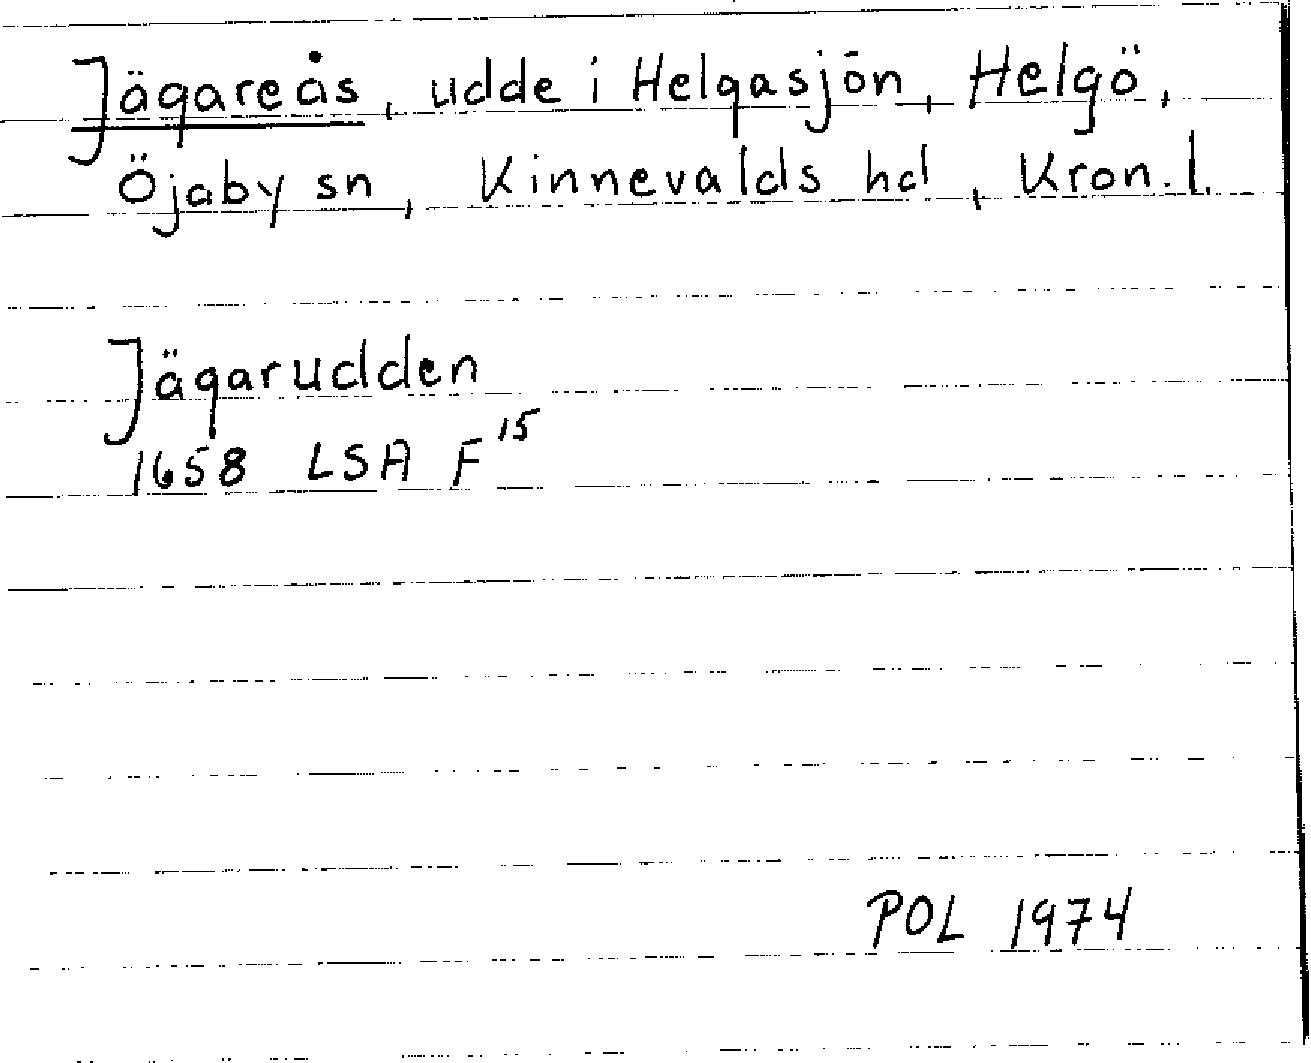 Jägareås, udde i Helgasjön, Helgö,
Öjaby sn, Kinnevalds hd, Kron. l.
Jägarudden
1658 LSA F 15
POL 1974